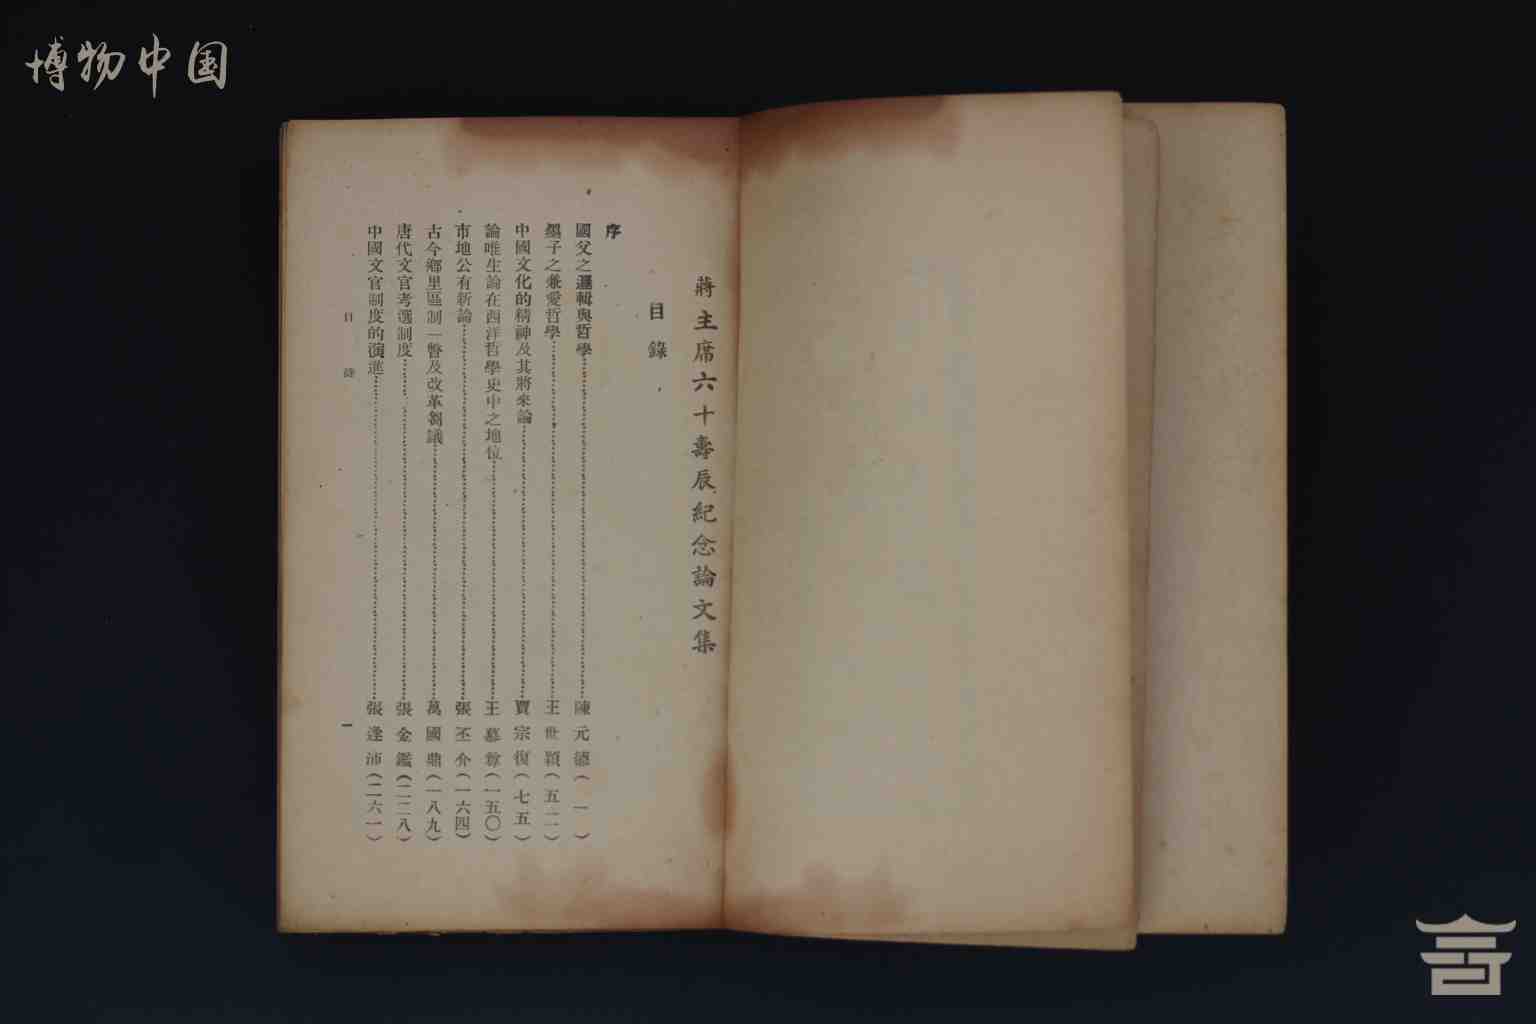 博物中国
蔣主席六十壽辰紀念論文集
目錄
序
國父之邏輯與哲學 陳元德（一）
墨子之兼愛哲學 王世穎（五二）
中國文化的精神及其將來論 賈宗復（七五）
論唯生論在西洋哲學史中之地位 王慕尊（一五〇）
市地公有新論 張丕介（一六四）
古今鄉里區制一瞥及改革芻議 萬國鼎（一八九）
唐代文官考選制度 張金鑑（二二八）
中國文官制度的演進 張逢沛（二六一）
目錄 一